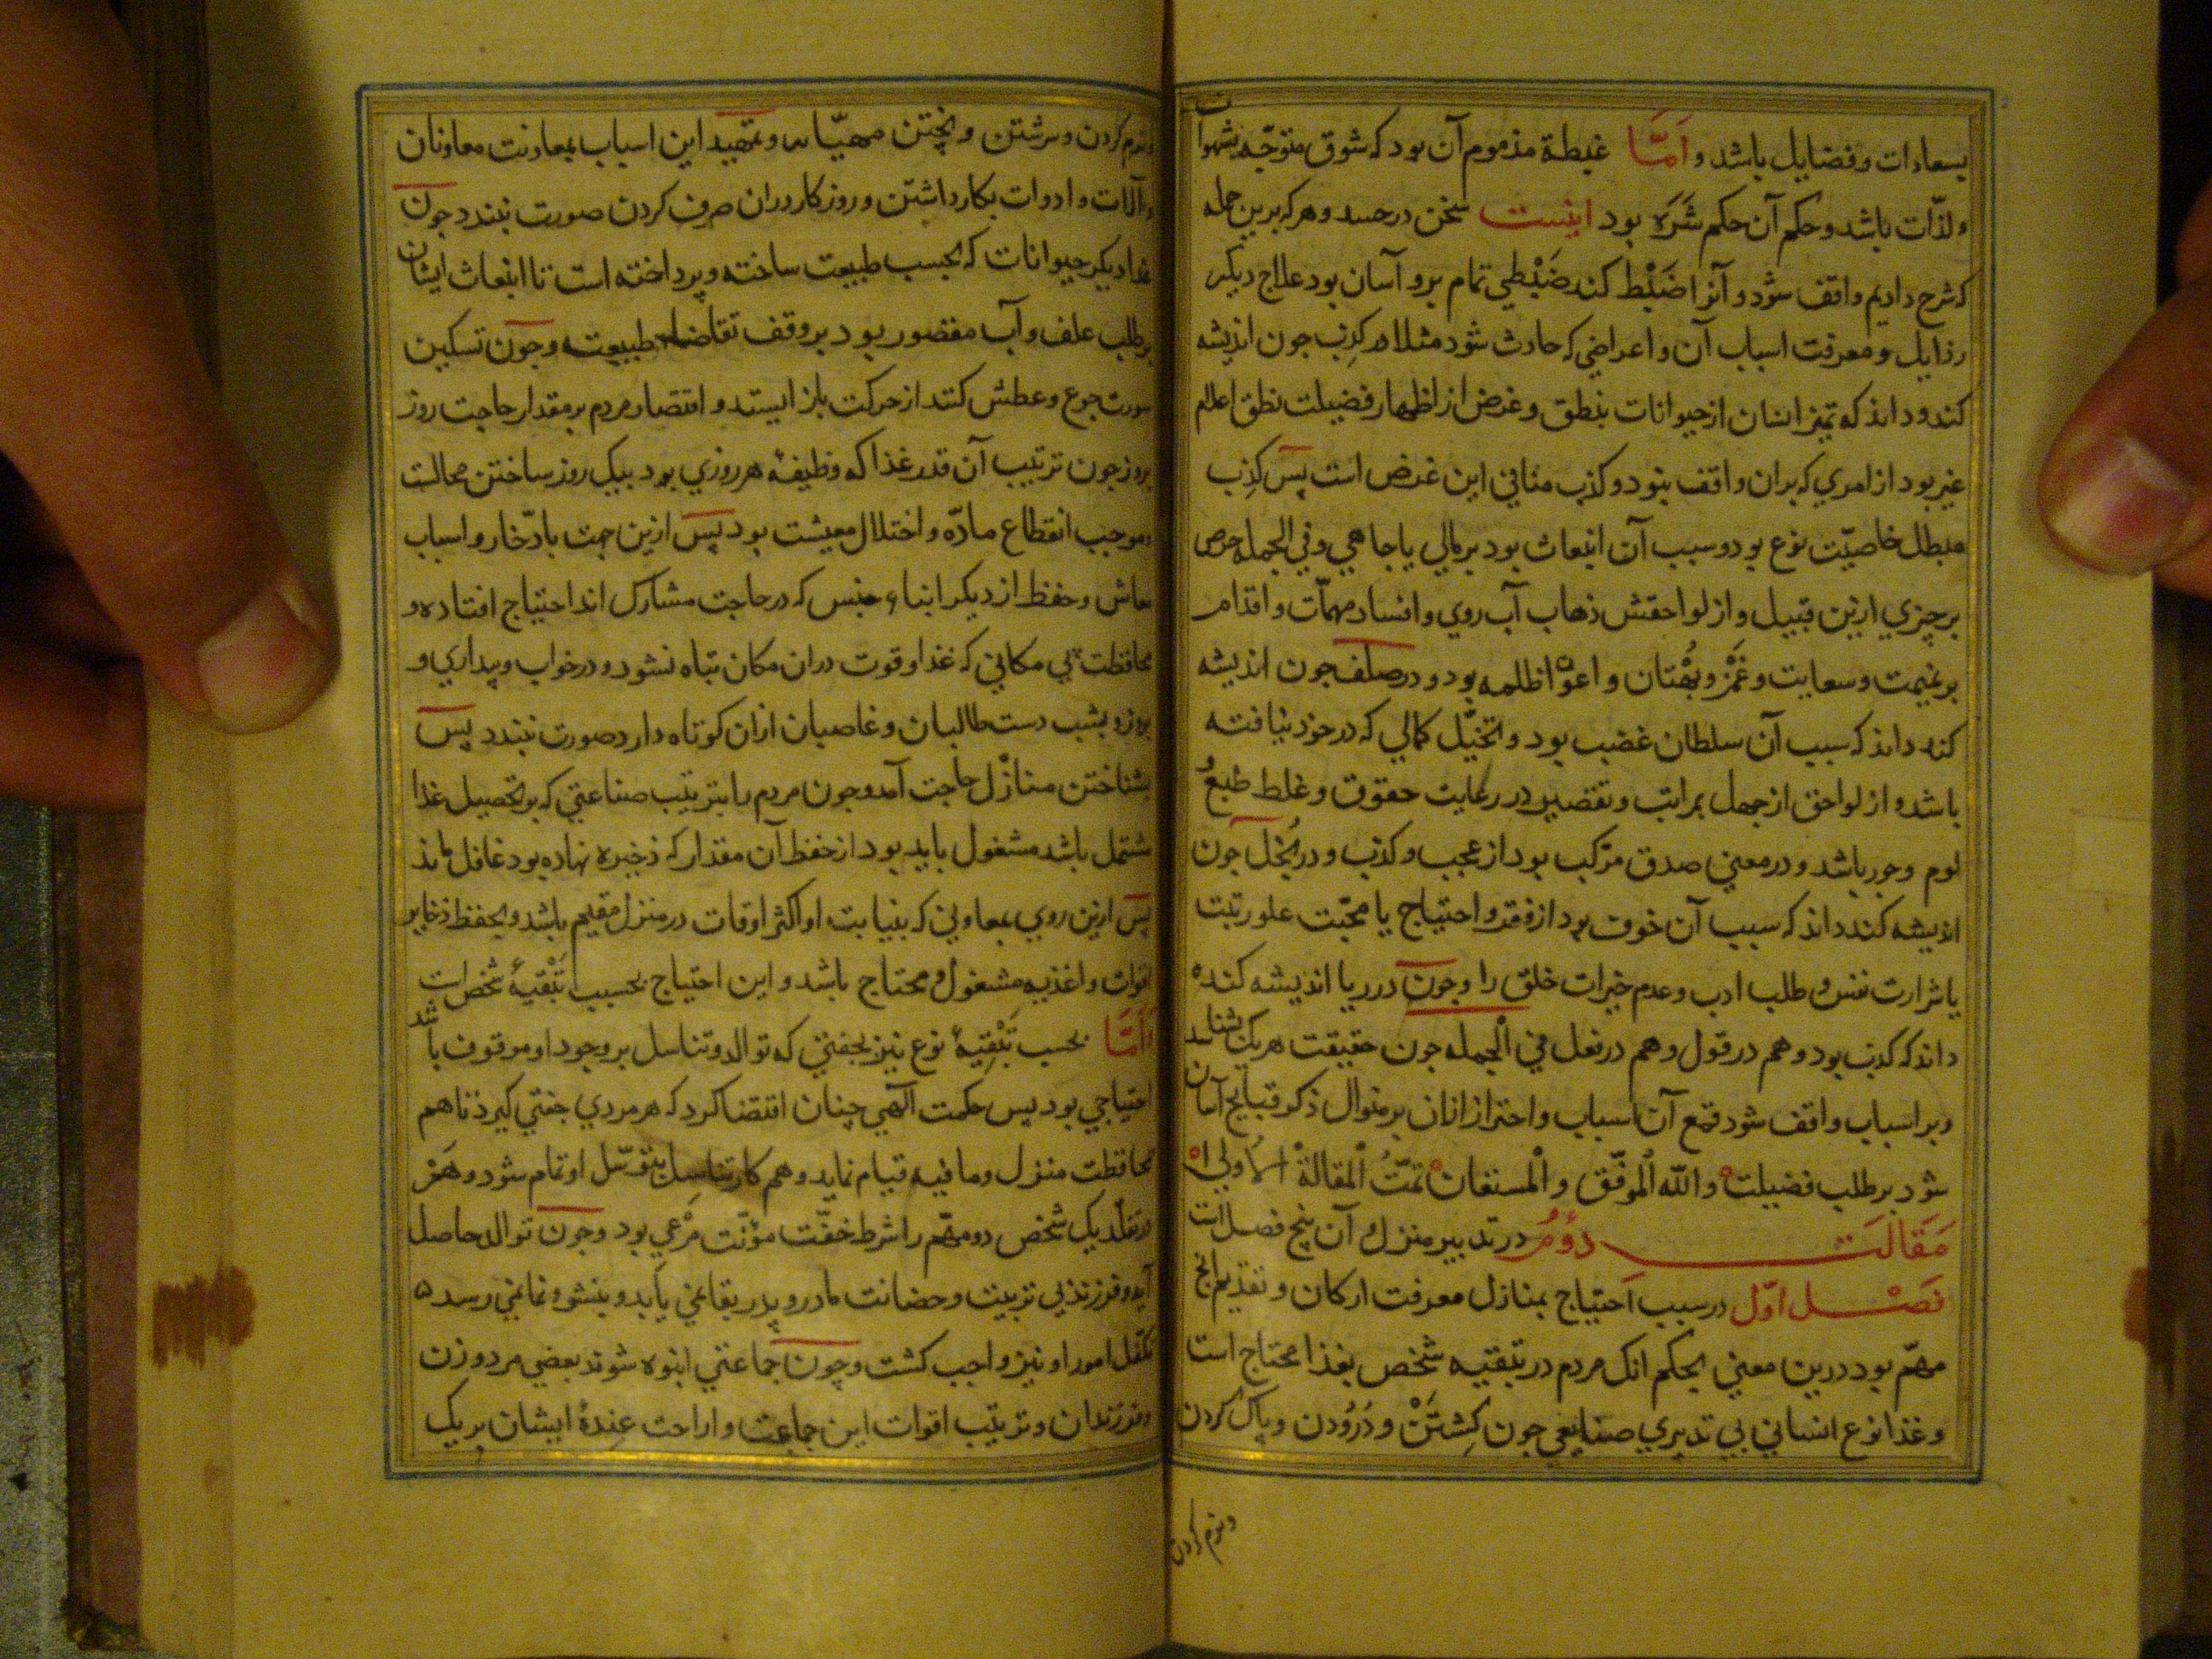 بسعادات و فضایل باشد و اَمَّا غبطهٔ مذموم آن بود که شوق متوجّه بشهوات
و لذّات باشد و حکم آن حکم شَرَه بود اینست سخن در حسد و هر که برین جمله
که شرح دادیم واقف شود و آنرا ضَبْط کند ضَبْطی تمام برو آسان بود علاج دیگر
رذایل و معرفت اسباب آن و اعراضی که حادث شود مثلا در کذب جون اندیشه
کند و داند که تمیز انسان از حیوانات بنطق و غرض از اظهار فضیلت نطق اعلام
غیر بود از امری که بران واقف نبود و کذب منافی این غرض است پس کذِب
مبطل خاصیّت نوع بود و سبب آن انبعاث بود بر مالی یا جاهی و فی الجمله حرص
بر چیزی ازین قبیل و از لواحقش ذهاب آب روی و افساد مهمّات و اقدام
بر نمیمت و سعایت و غَمْز و بُهْتان و اعوان ظلمه بود و در صلَف جون اندیشه
کند داند که سبب آن سلطان غضب بود و تخیّل کمالی که در خود نیافته
باشد و از لواحق از جهل بمراتب و تقصیر در رعایت حقوق و غلط طبع
لوم و جور باشد و در معنی صدق مرّکب بود از عجب و کذب و در بُخل جون
اندیشه کند داند که سبب آن خوف بود از فقر و احتیاج یا محبّت علو رتبت
یا شرارت نفس و طلب ادب و عدم خیرات خلق را و جون در ریا اندیشه کند
داند که کذب بود و هم در قول و هم در فعل فی الْجمله جون حقیقت هریک بشناسد
و بر اسباب واقف شود قمع آن اسباب و احتراز ازان بر منوال ذکر قبایح آسان
شود بر طلب فضیلت و اللّه الْموفّق و الْمستعان تمّتُ الْمقالةْ الاُولی
مَقَالَت دوُم در تدبیر منزل و آن پنج فصل است
فصْل اوّل در سبب اَحتیاج بمنازل معرفت ارکان و تقدیم انج
مهّم بود درین معنی بحکم انک مردم در تبقیه شخص بغذا محتاج است
و غذا نوع انسانی بی تدبیری صنایعی جون کِشتَنْ و دُروُدن و پاک کردن
و نرم کردن
و نرم کردن و سرشتن و پختن مهیّا و تمهید این اسباب بمعاونت معاونان
و آلات و ادوات بکار داشتن و روزکار دران صرف کردن صورت نبندد جون
غذا دیکر حیوانات که بحسب طبیعت ساخته و پرداخته است تا انبعاث ایشان
بر طلب علف و آب مقصور بود بر وقف تقاضاء طبیعت و جون تسکین
سورت جوع و عطش کنند از حرکت باز ایستد و اقتصار مردم بر مقدار حاجت روز
بروز جون ترتیب آن قدر غذا که وظیفهٔ هر روزی بود بیک روز ساختن محالست
و موجب انقطاع مادّه و اختلال معیشت بود پس ازین جهت بادّخار و اسباب
معاش و حفظ از دیکر ابناء جنس که در حاجت مشارک اند احتیاج افتاده و
محافظت بی مکانی که غذا و قوت دران مکان تباه نشود و در خواب و بیداری و
بروز و بشب دست طالبان و غاصبان ازان کوتاه دارد صورت نبندد پس
بشناختن منازل حاجت آمد و جون مردم را بترتیب صناعتی که بر تحصیل غذا
مشتمل باشد مشغول باید بود از حفظ آن مقدار که ذخیره نهاده بود غافل ماند
پس ازین روی بمعاونی که بنیابت او اکثر اوقات در منزل مقیم باشد و بحفظ ذخایر
اقوات و اغذیه مشغول و محتاج باشد و این احتیاج بحسب تَبْقیهٔ شخص است
و اَمَّا بحسب تَبْقِیهٔ نوع نیز بجفتی که توالد و تناسل بر وجود او موقوف باشد
احتیاجی بود پس حکمت آلهی چنان اقتضا کرد که هر مردی جفتی کیرد تا هم
محافظت منزل و ما فیه قیام نماید و هم کار تناسل بتوسّل او تمام شود و هَم
در تقلّد یک شخص دو مهم را شرط خفّت مؤنّت مرْعی بود و جون توالد حاصل
آید و فرزند بی تربیت و حضانت مادر و پدر بقا نمی یابد و بنشو و نما نمی رسد
تکفّل امور او نیز واجب کشت و چون جماعتی انبوه شوند بعضی مرد و زن
و فرزندان و ترتیب اقوات این جماعت و ازاحت عِلهٔ ایشان بر یک